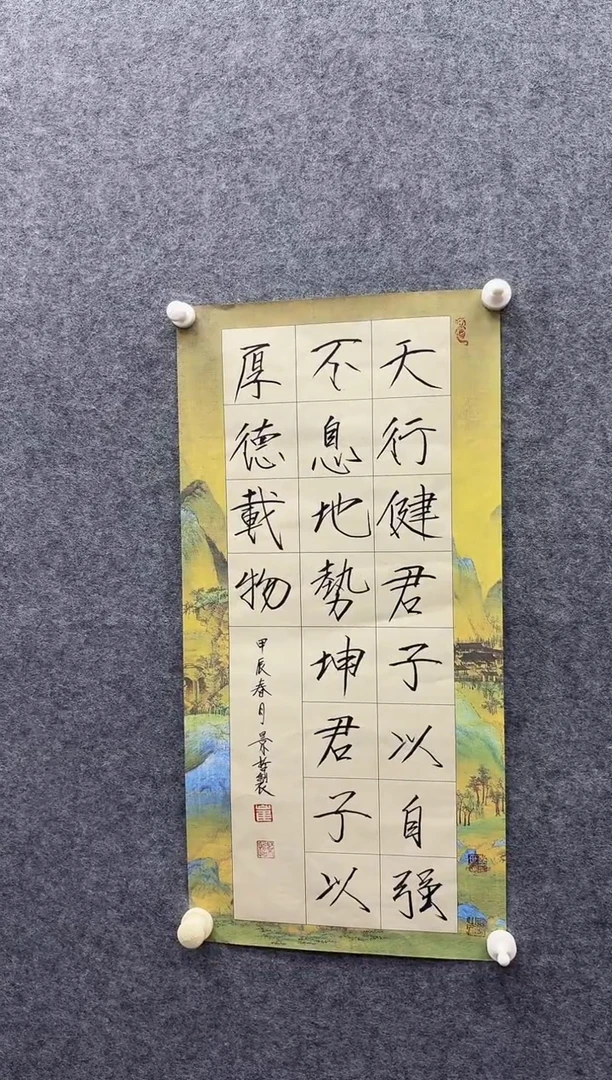 天行健君子以自强
不息地勢坤君子以
厚德載物
甲辰春月景哲製